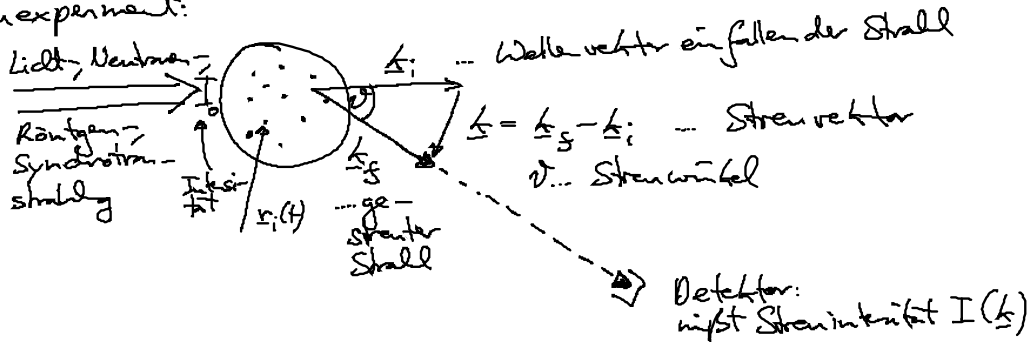 experiment:
Licht-, Neutronen-,
Röntgen-,
Synchrotron-
strahlg
I₀
Intensi-
tät
r_i(t)
k_i ... Wellenvektor einfallender Strahl
ϑ
k_f
.... ge-
streuter
Strahl
k = k_f - k_i ... Streuvektor
ϑ... Streuwinkel
Detektor:
mißt Streuintensität I(k)